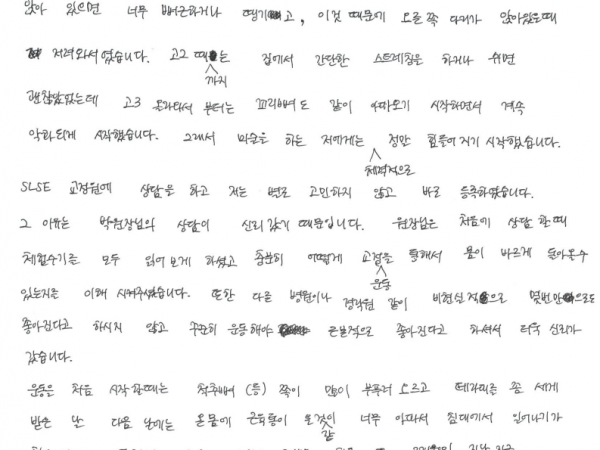 앉아 있으면 너무 뻐근하거나 땡기고, 이것 때문에 오른쪽 다리가 앉아있을때
저려와서 였습니다. 고2 때까지는 집에서 간단한 스트레칭을 하거나 쉬면
괜찮았었는데 고3 올라와서 부터는 꼬리뼈도 같이 아파오기 시작하면서 계속
악화되게 시작했습니다. 그래서 미술을 하는 저에게는 체력적으로 정말 힘들어지기 시작했습니다.
SLSE 교정원에 상담을 하고 저는 별로 고민하지 않고 바로 등록하였습니다.
그 이유는 박원장님의 상담이 신뢰갔기 때문입니다. 원장님은 처음에 상담 할때
체험수기를 모두 읽어보게 하셨고 충분히 어떻게 교정운동을 통해서 몸이 바르게 돌아올수
있는지를 이해 시켜주셨습니다. 또한 다른 병원이나 경락원 같이 비현실적으로 몇번만으로도
좋아진다고 하시지 않고 꾸준히 운동해야 근본적으로 좋아진다고 하셔서 더욱 신뢰가
갔습니다.
운동을 처음 시작할때는 척추뼈(등) 쪽이 많이 부풀러 오르고 테라피를 좀 세게
받은 난 다음 날에는 온몸에 근육통이 온것 같이 너무 아파서 침대에서 일어나기가